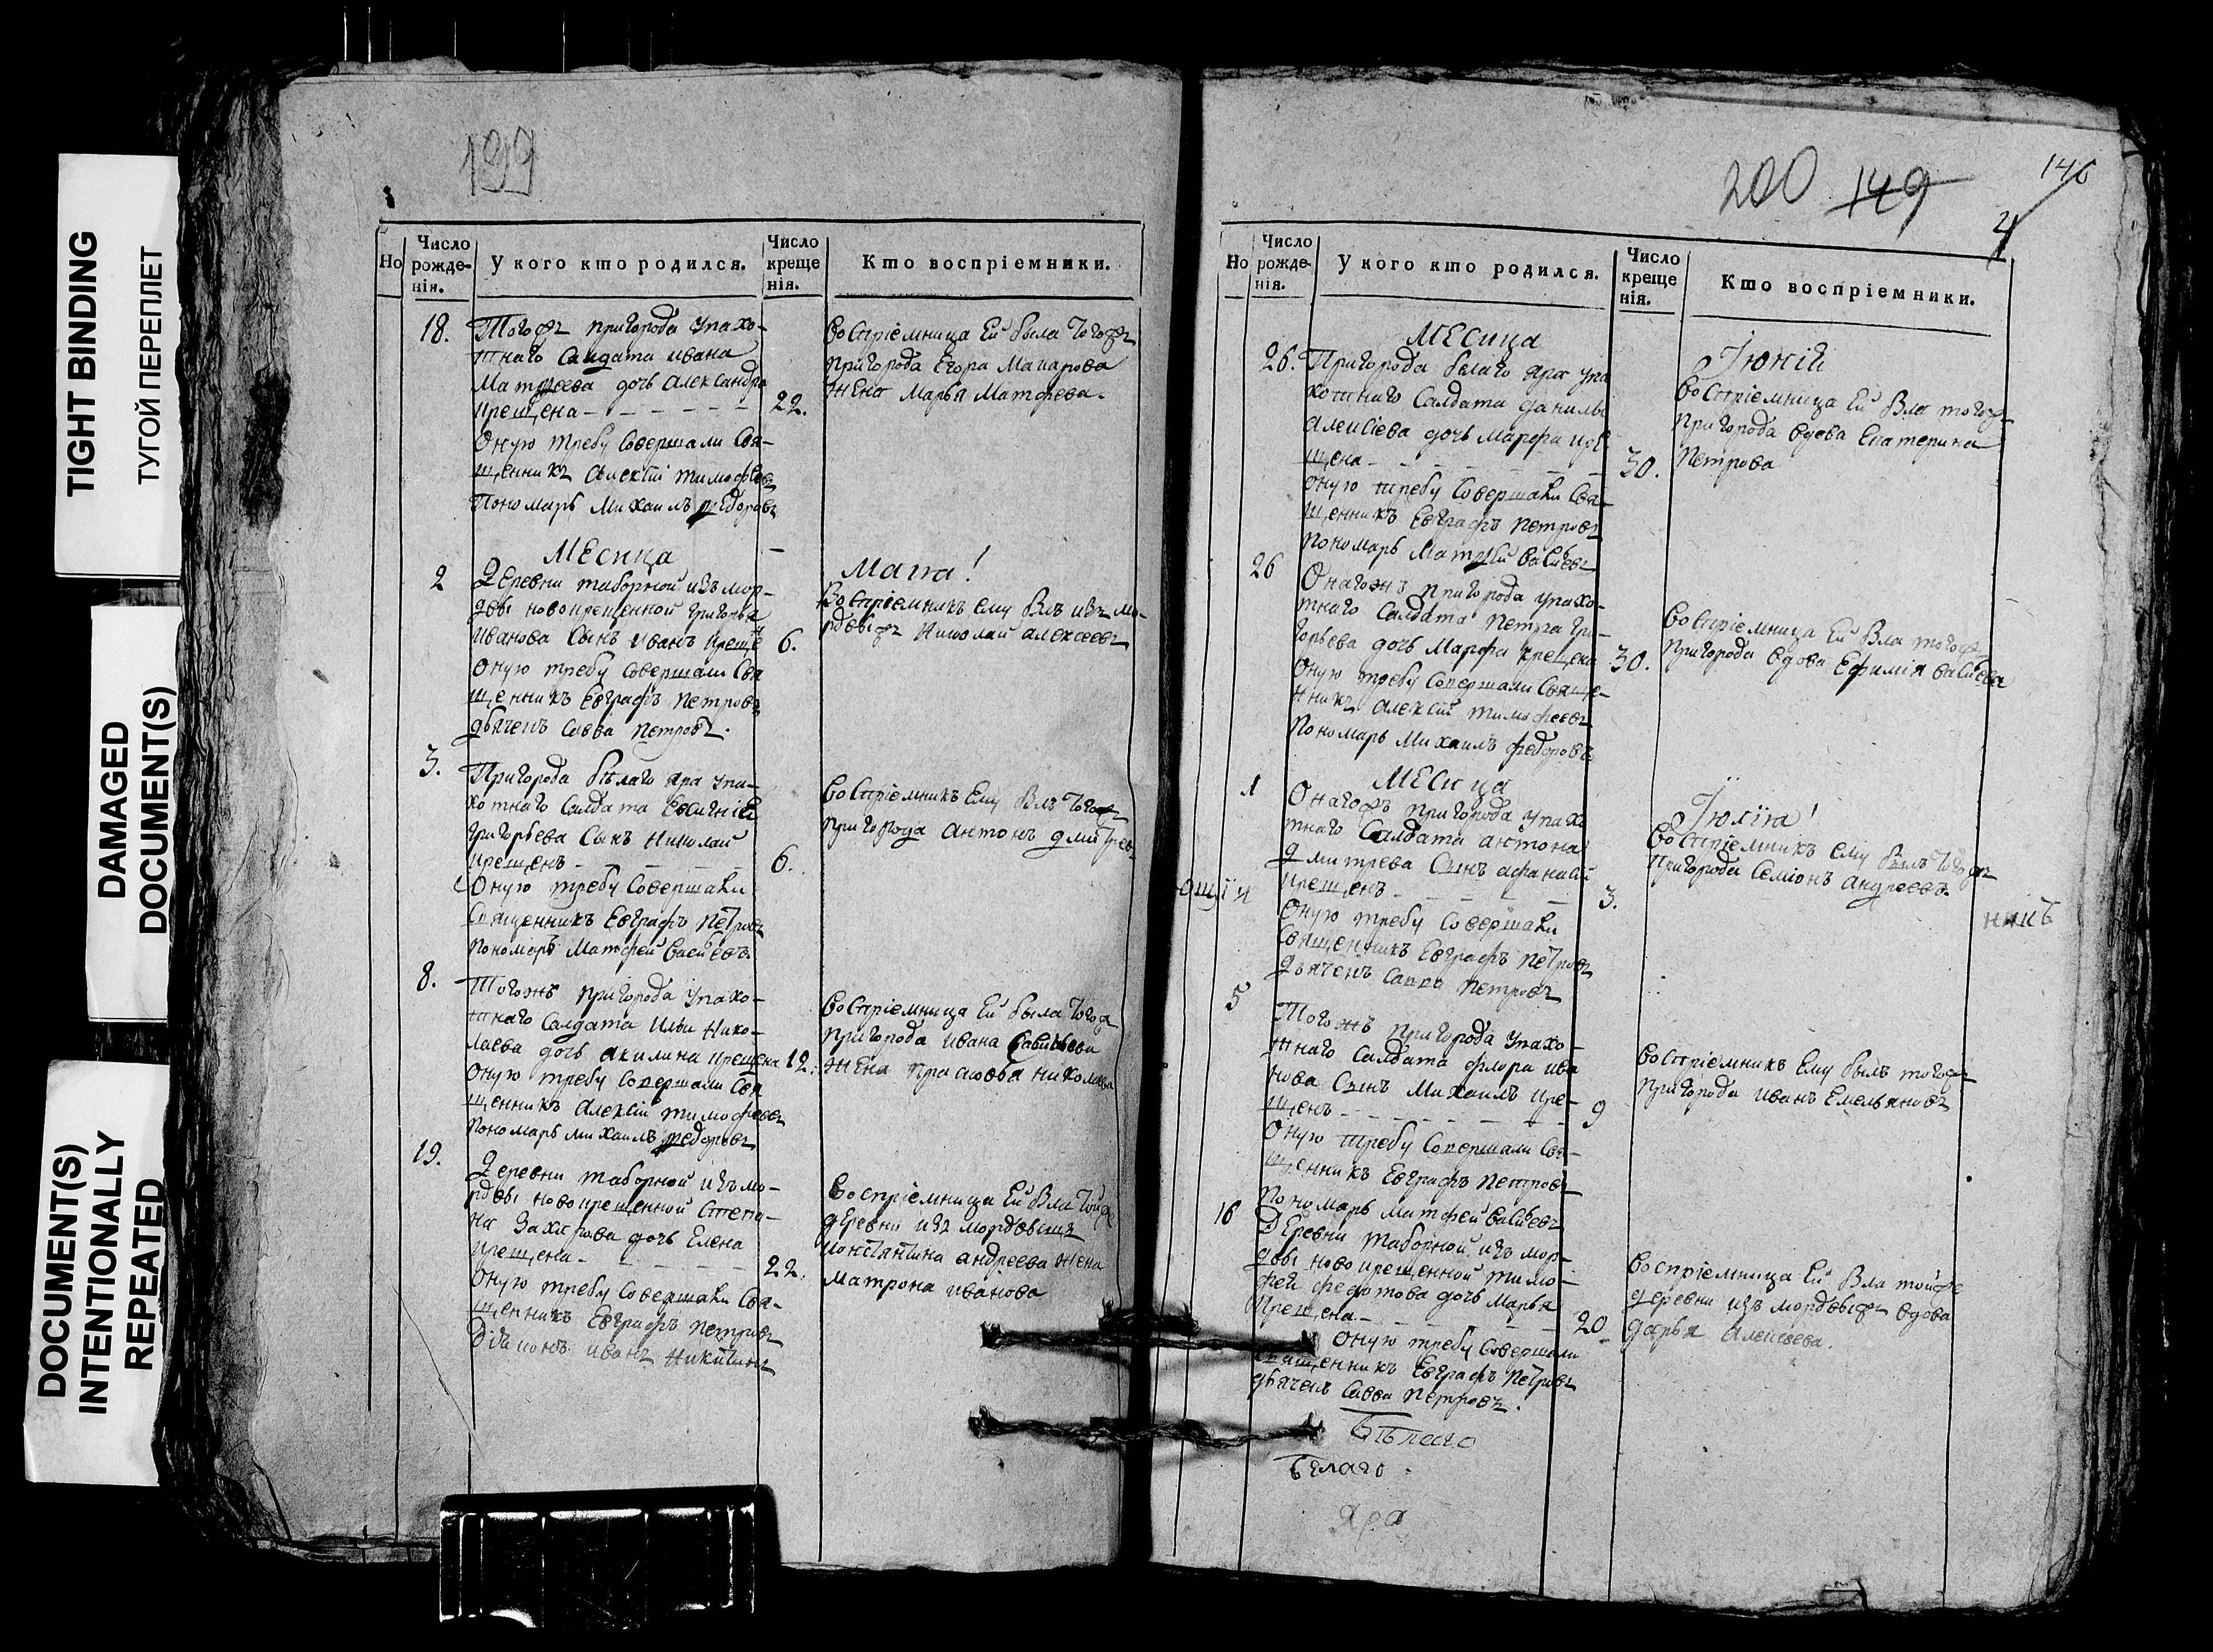 TIGHT BINDING
ТУГОЙ ПЕРЕПЛЕТ
DAMAGED
DOCUMENT(S)
DOCUMENT(S)
INTENTIONALLY
REPEATED
199
Но
Число рожденія.
У кого кто родился.
Число креще нія.
Кто воспріемники.
18.
Тогожъ пригорода упахо-
тнаго Салдата ивана
Матфеева дочь александра
крещена
22.
Оную требу Совершали Свя-
щенникъ алексій тимофеевъ
Пономарь Михаилъ федоровъ
воспріемница Ей была тогожъ
пригорода Егора Макарова
жена Марья Матфева.
Месяца
Маиа!
2
Деревни таборной изъ мор-
двы новокрещенной григорья
иванова Сынъ иванъ креще
6.
Оную требу совершали Свя
щенникъ Евграфъ петровъ
дьячекъ Савва петровъ.
воспріемникъ ему былъ изъ мо-
рдвыжъ Николай алексеевъ
3.
Пригорода белаго яра упа-
хотнаго Салдата Евсигнія
григорьева Сынъ Николай
крещенъ
6.
Оную требу Совершали
Священникъ Евграфъ петровъ
пономарь Матфей васильевъ.
воспріемникъ Ему былъ тогожъ
пригорода антонъ дмитревъ
8.
Тогожъ пригорода упахо-
тнаго Салдата Ильи Нико-
лаева дочь акилина крещена
12.
Оную требу Совершали Свя
щенникъ алексій тимофеевъ
пономарь михаилъ федоровъ
воспріемница Ей была тогож
пригорода ивана Савельева
жена прасковья николаева
19.
Деревни таборной изъ мо-
рдвы новокрещенной Степа-
на Захарова дочь Елена
крещена
22.
Оную требу Совершали Свя-
щенникъ Евграфъ петровъ
діаконъ иванъ никитинъ
Воспріемница Ей была тойже
деревни изъ мордвыжъ
константина андреева жена
матрона иванова
200
149
146
4
Но
Число рожденія.
У кого кто родился.
Число креще нія.
Кто воспріемники.
Месяца
Іюній
26.
Пригорода белаго яра упа
хотнаго Салдата данилы
алексіева дочь марфа кре
щена
30.
оную требу Совершали Свя-
щенникъ Евграфъ петровъ
пономарь Матфей васильевъ
воспріемница Ей была тогож
пригорода вдова Екатерина
петрова
26
Онагожъ пригорода упахо-
тнаго Салдата петра гри-
горьева дочь марфа крещена
30.
Оную требу совершали Свяще-
нникъ алексій тимофеевъ
пономарь михаилъ федоровъ
воспріемница Ей была тогожъ
пригорода вдова Ефимія васильева
Месяца
Іюліа!
1
Онагожъ пригорода упахо
тнаго Салдата антона
дмитрева Сынъ афанасій
крещенъ
3.
Оную требу совершали
Священникъ Евграфъ петровъ
дьячекъ Савва петровъ
воспріемникъ ему былъ тогожъ
пригорода Семіонъ андреевъ.
никъ
5
Тогожъ пригорода упахо-
тнаго Салдата флора ива
нова Сынъ Михаилъ кре-
щенъ
9
Оную требу Совершали Свя-
щенникъ Евграфъ петровъ
пономарь матфей васильевъ
воспріемникъ Ему былъ тогожъ
пригорода иванъ Емельяновъ
16
Деревни таборной изъ мор-
двы новокрещенной тимо-
фея федотова дочь марья
крещена
20
Оную требу Совершали
Священникъ Евграфъ петровъ
дьячекъ Савва петровъ.
воспріемница Ей была тойже
деревни изъ мордвыжъ вдова
дарья алексеева.
Бѣлаго
Белаго
Яра